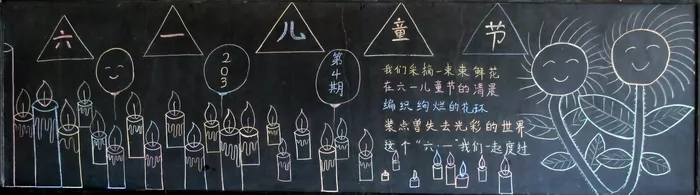 六一儿童节
203
第4期
我们采摘一束束鲜花
在六一儿童节的清晨
编织绚烂的花环
装点曾失去光彩的世界
这个“六·一”我们一起度过